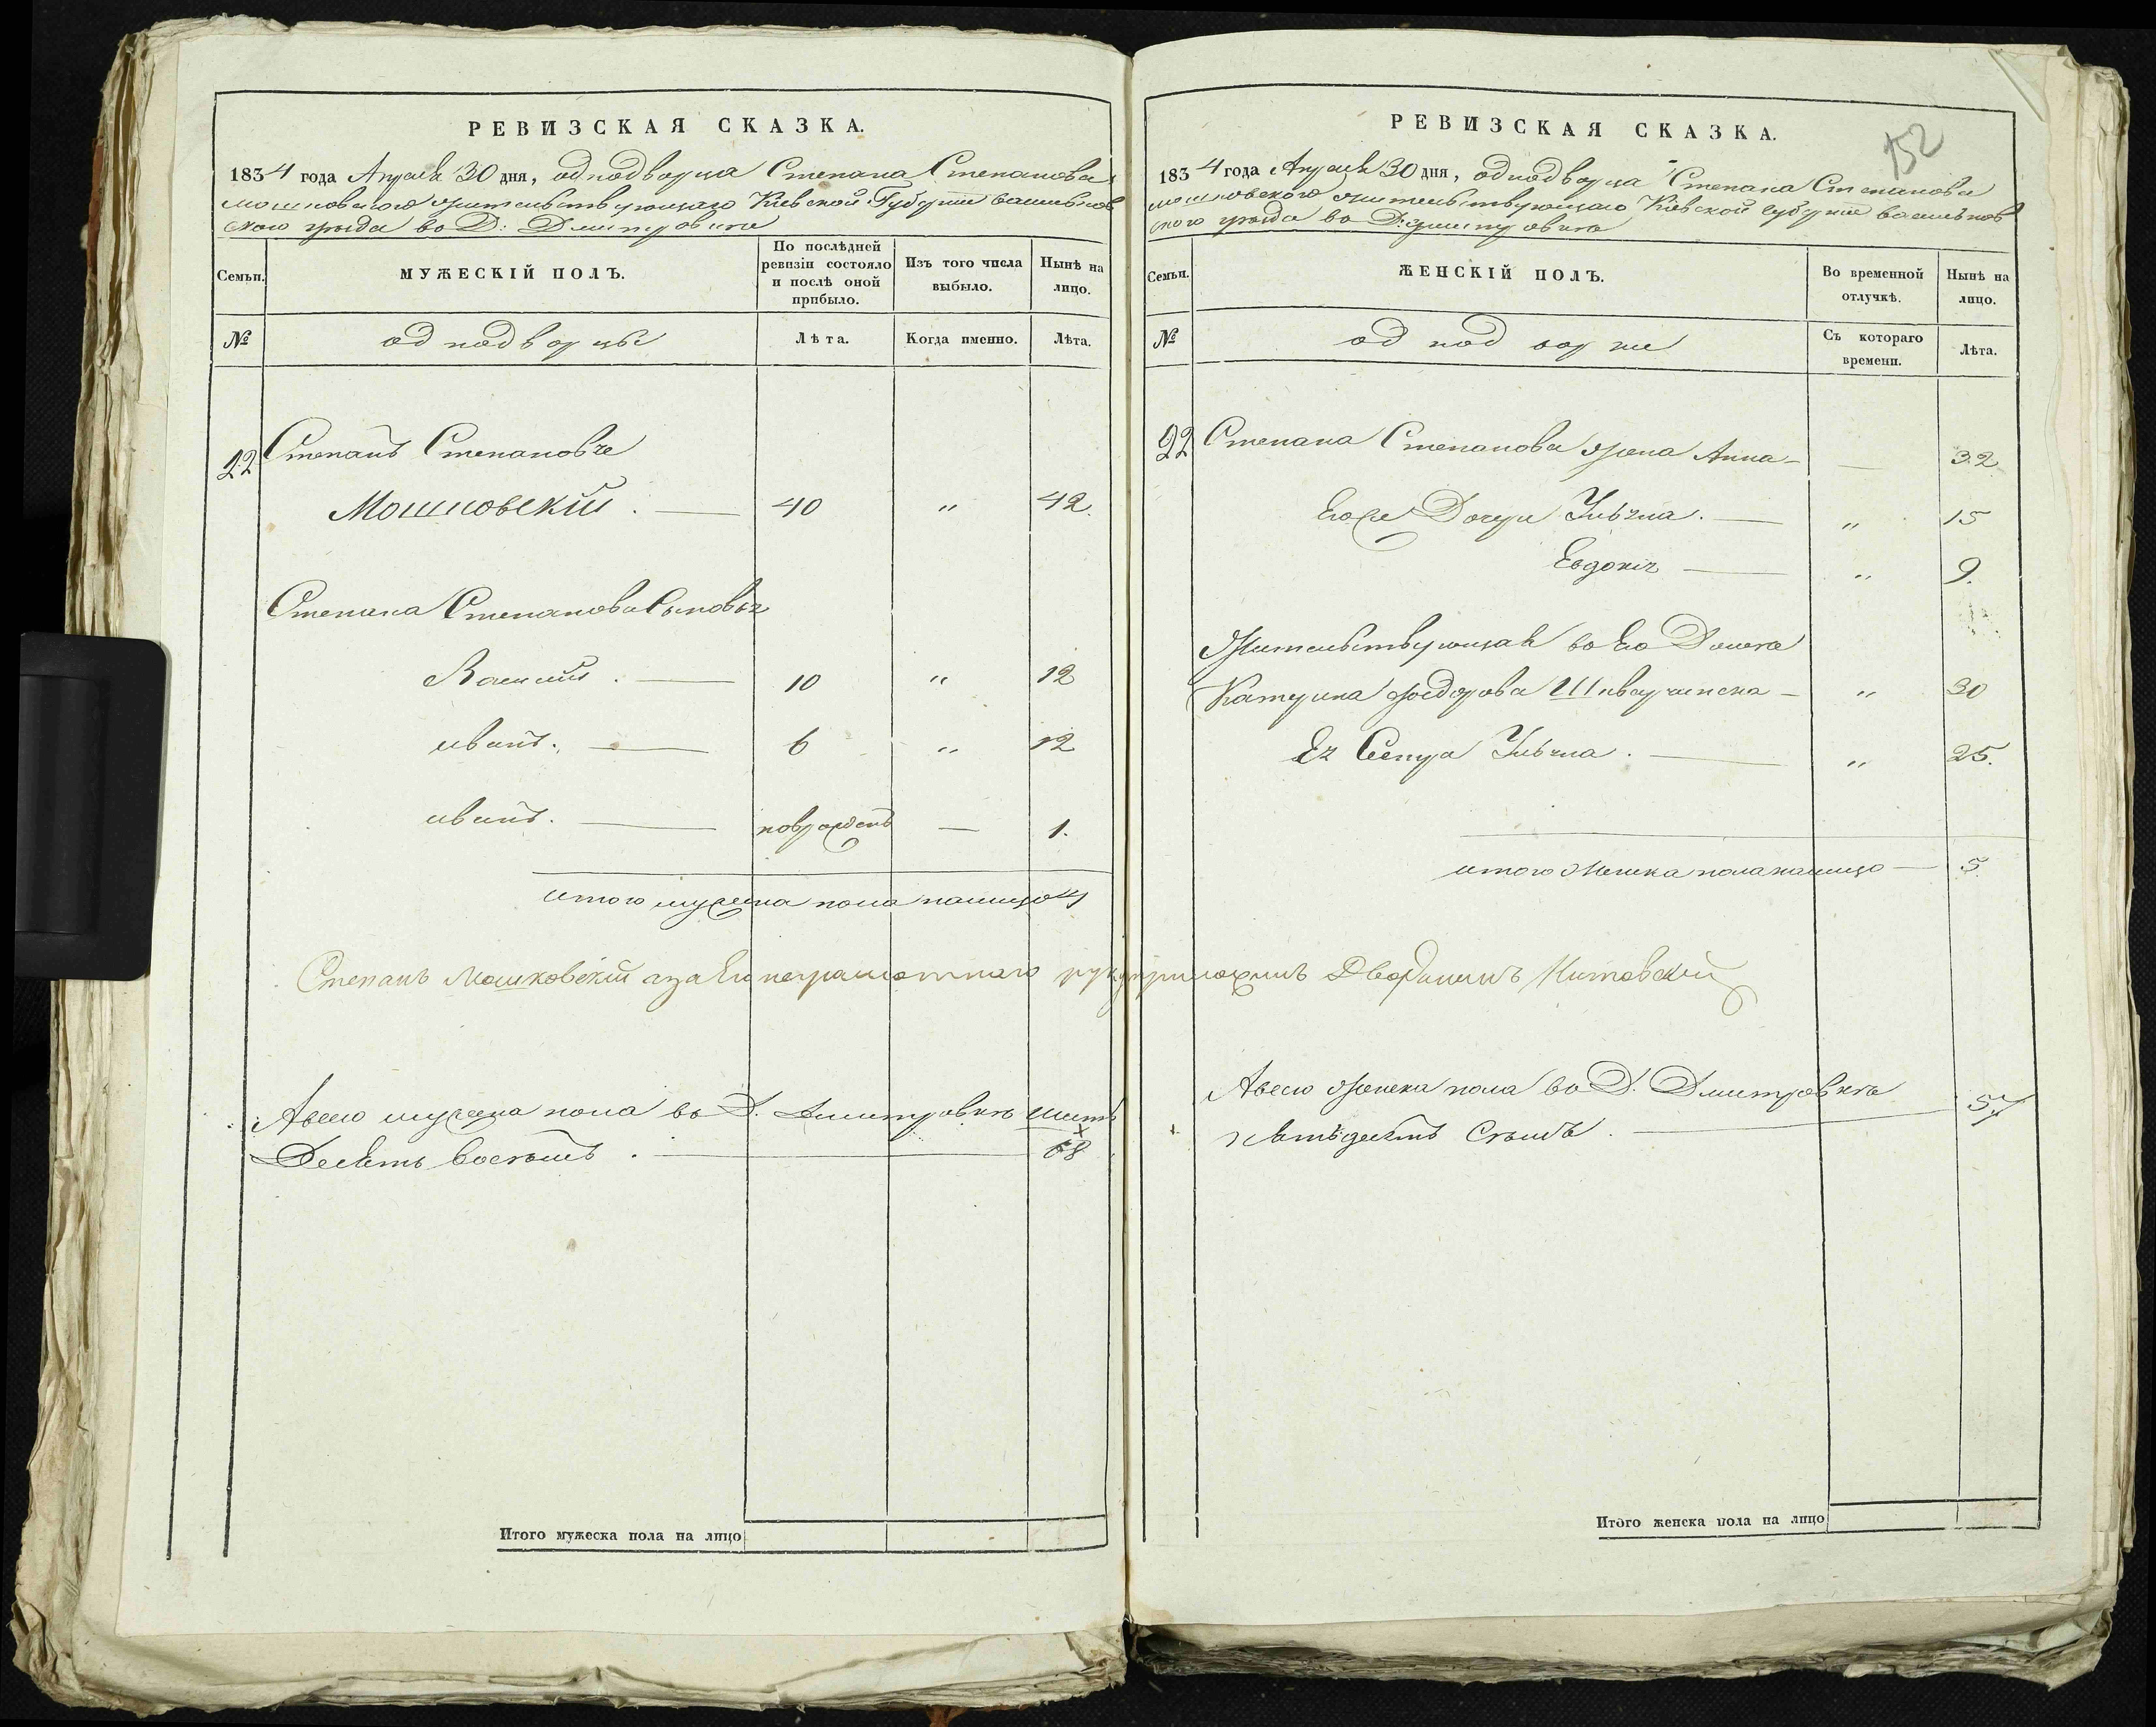 РЕВИЗСКАЯ СКАЗКА.
1834 года Апреля 30 дня, однодворца Степана Степанова
Мошковского жительствующаго Киевской Губернии василков
ского уезда во Д: Дмитровке
Семьи.
МУЖЕСКІЙ ПОЛЪ.
По послѣдней ревизіи состояло и послѣ оной прибыло.
Изъ того числа выбыло.
Нынѣ на лицо.
№
однодворцы
Лѣта.
Когда именно.
Лѣта.
22 Степанъ Степановъ
Мошковскій . — 40 " 42.
Степана Степанова Сыновья
Василий . — 10 " 12
иванъ. — 6 " 12
иванъ. — новрожденъ — 1.
итого мужеска пола налицо 4
Степанъ Мошковскій а за Его неграмотнаго руку приложилъ Дворянинъ
Авсего мужеска пола во Д. Дмитровке шесть
Десять восемь . — 68
Итого мужеска пола на лицо
РЕВИЗСКАЯ СКАЗКА.
152
1834 года Апреля 30 дня, однодворца Степана Степанова
мошковского жительствующаго Киевской губернии василков
ского уезда во Д: Дмитровке
Семьи.
ЖЕНСКІЙ ПОЛЪ.
Во временной отлучкѣ.
Нынѣ на лицо.
№
Съ котораго времени.
Лѣта.
22 Степана Степанова жена Анна — — 32
Его же Дочери Ульяна. — " 15
Евдокия — " 9.
Жительствующая во Его Доме
Катерина Федорова — " 30
Ея Сестра Ульяна . — " 25.
итого Женска пола налицо — 5
Авсего Женска пола во Д. Дмитровке
пятьдесятъ Семь . — 57
Итого женска пола на лицо